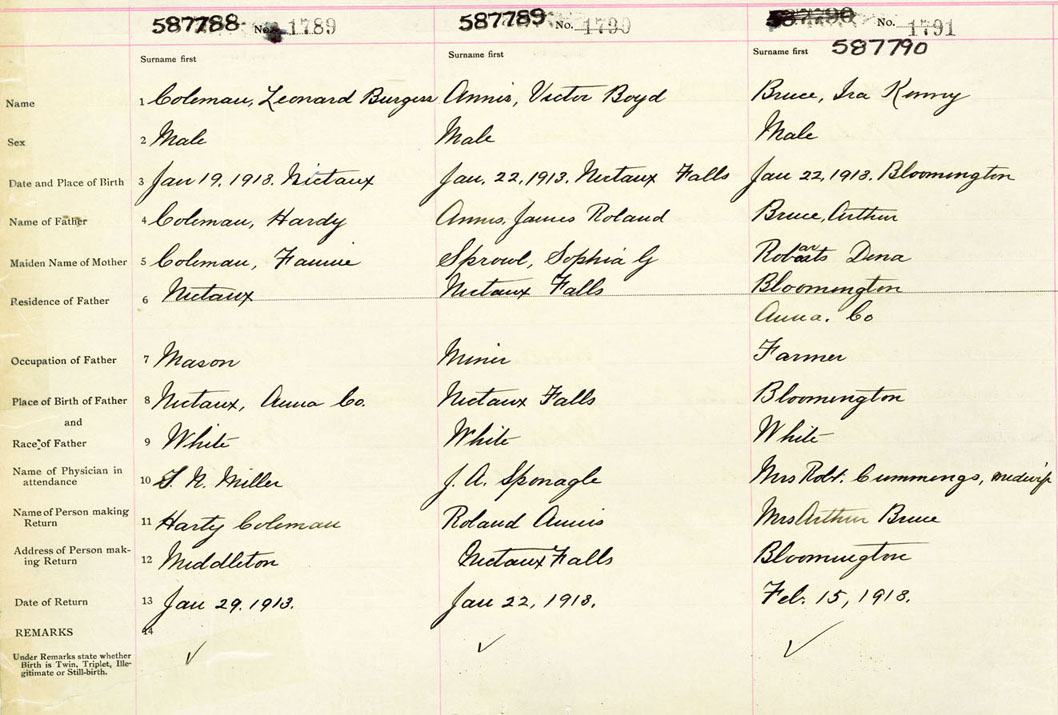 587788 No. 1789 587789 No. 1790 587790 No. 1791
587790
Surname first Surname first Surname first
Name 1 Coleman, Leonard Burgess Annis, Victor Boyd Bruce, Ira Kenny
Sex 2 Male Male Male
Date and Place of Birth 3 Jan 19, 1913. Nictaux Jan. 22, 1913. Nictaux Falls Jan 22, 1913. Bloomington
Name of Father 4 Coleman, Hardy Annis, James Roland Bruce, Arthur
Maiden Name of Mother 5 Coleman, Fannie Sprowl, Sophia G Robarts Dena
Residence of Father 6 Nictaux Nictaux Falls Bloomington
Anna. Co
Occupation of Father 7 Mason Miner Farmer
Place of Birth of Father 8 Nictaux, Anna Co. Nictaux Falls Bloomington
and
Race of Father 9 White White White
Name of Physician in
attendance 10 Miller J. A. Sponagle Mrs Robt. Cummings, midwife
Name of Person making
Return 11 Harty Coleman Roland Annis Mrs Arthur Bruce
Address of Person mak-
ing Return 12 Middleton Nictaux Falls Bloomington
Date of Return 13 Jan 29. 1913. Jan 22, 1913. Feb. 15, 1913.
REMARKS 14
Under Remarks state whether
Birth is Twin, Triplet, Ille-
gitimate or Still-birth.